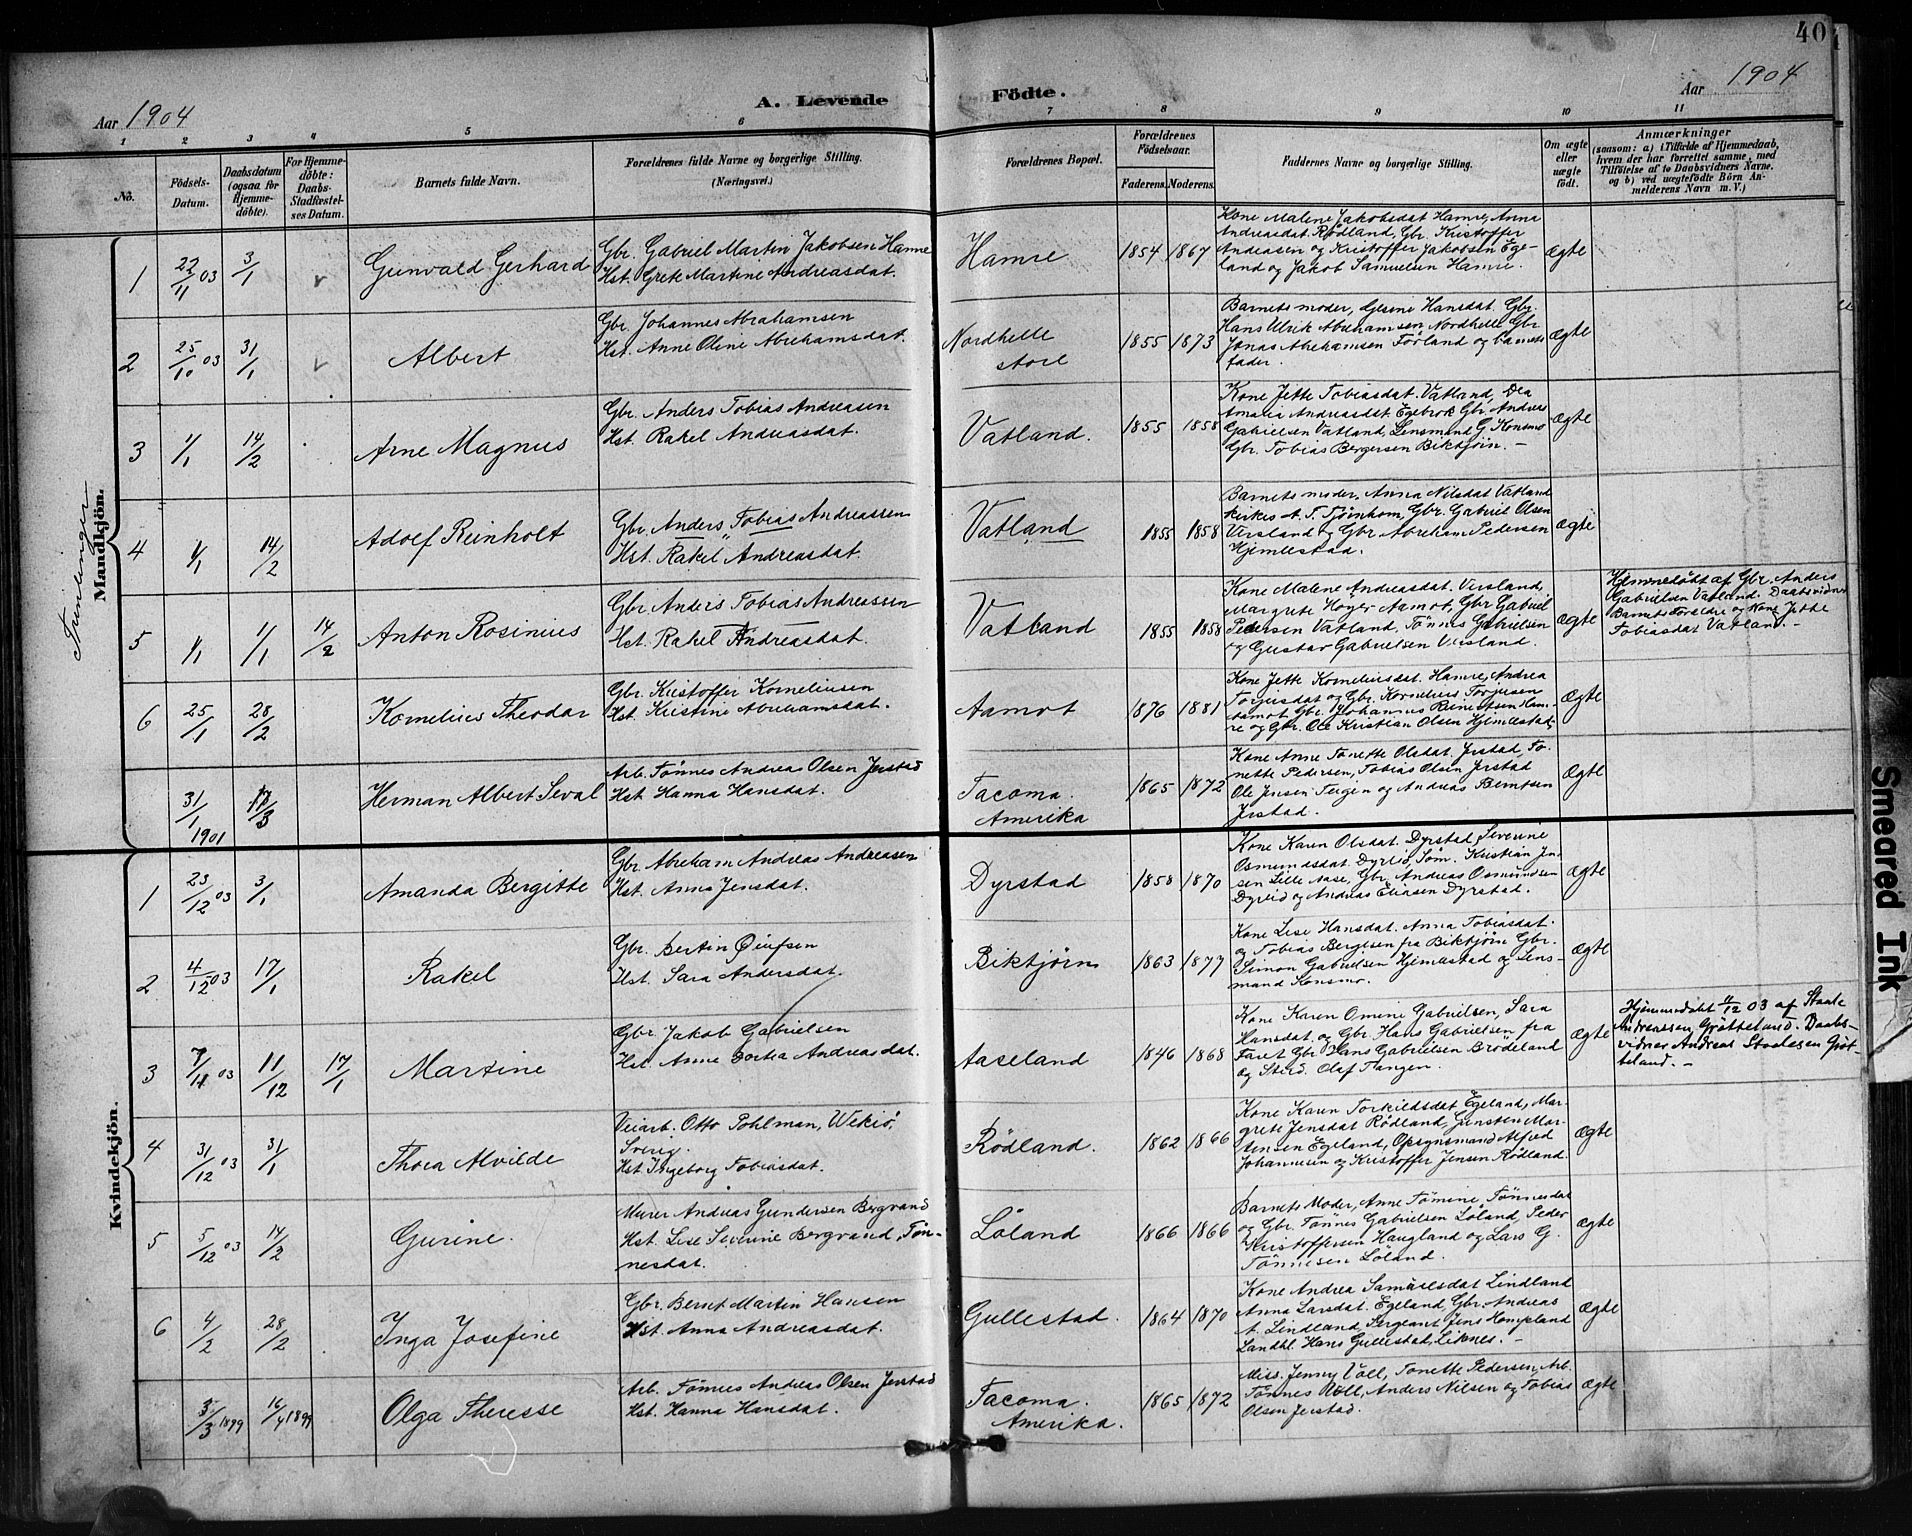 40
Aar 1904
A. Levende
Födte.
Aar 1904
1 2 3 4 5 6 7 8 9 10 11
No.
Födsels-
Datum.
Daabsdatum
(ogsaa for
Hjemme-
döbte).
For Hjemme-
döbte:
Daabs-
Stadfæstel-
ses Datum.
Barnets fulde Navn.
Forældrenes fulde Navne og borgerlige Stilling.
(Næringsvei.)
Forældrenes Bopæl.
Forældrenes
Födselsaar.
Faderens. Moderens.
Faddernes Navne og borgerlige Stilling.
Om ægte
eller
uægte
født.
Anmærkninger
(saasom: a) i Tilfælde af Hjemmedaab,
hvem der har forrettet samme, med
Tilföielse af to Daabsvidners Navne,
og b) ved uægtefödte Börn An-
melderens Navn m. V.)
Mandkjön.
1 22/11 03 3/1 Gunvald Gerhard
Gbr. Gabriel Martin Jakobsen Hamre
Hst. Grete Martine Andreasdat.
Hamre 1854 1867
Kone Malene Jakobsdat Hamre, Anna
Andreasdat. Rødland, Gbr. Kristoffer
Andreasen og Kristoffer Jakobsen Ege-
land og Jakob Samuelsen Hamre.
Ægte
2 25/10 03 31/1 Albert
Gbr. Johannes Abrahamsen
Hst. Anne Oline Abrahamsdat.
Nordhelle
store
1855 1873
Barnets moder, Gesine Hansdat. Gbr.
Hans Ulrik Abrahamsen Nordhelle Gbr.
Jonas Abrahamsen Förland og barnets
fader.
Ægte
3 1/1 14/2 Arne Magnus
Gbr. Anders Tobias Andreasen
Hst. Rakel Andreasdat.
Vatland. 1855 1858
Kone Jette Tobiasdat. Vatland, Dea
Amalia Andreasdat. Egebrok Gbr. Andreas
Gabrielsen Vatland, Lensmand G. Konsmo
Gbr. Tobias Bergersen Biktjörn. -
Ægte
Trenlinger
4 1/1 14/2 Adolf Reinholt
Gbr. Anders Tobias Andreassen
Hst. Rakel Andreasdat.
Vatland 1855 1858
Barnets moder, Anna Nilsdat Vatland
kirkes. A. T. Tjörnhom, Gbr. Gabriel Olsen
Versland og Gbr Abraham Pedersen
Hjemlestad.
Ægte
5 1/1 1/1 14/2 Anton Rosinius
Gbr. Anders Tobias Andreassen
Hst. Rakel Andreasdat.
Vatland 1855 1858
Kone Malene Andreasdat. Versland,
Margrete Höyer Aamot, Gbr. Gabriel
Pedersen Vatland, Tönnes Gabrielsen
og Gustav Gabrielsen Versland.
Ægte
Hjemmedöbt af Gbr. Anders
Gabrielsen Vatland. Daabsvidner
Barnets Forældre og Kone Jette
Tobiasdat Vatland. -
6 25/1 28/2 Kornelius Theodor
Gbr. Kristoffer Korneliusen
Hst. Kristine Abrahamsdat.
Aamot 1876 1881
Kone Jette Korneliusdat. Hamre, Andrea
Torjusdat og Gbr. Kornelius Torjusen
Aamot, Gbr. Johannes Reinertsen Ham-
re og Gbr. Ole Kristian Olsen Hjemlestad.
Ægte
31/1 1901 13/3 Herman Albert Seval
Arb. Tönnes Andrea Olsen Jerstad
Hst. Hanna Hansdat.
Tacoma.
Amerika
1865 1872
Kone Anne Tonette Olsdat. Jerstad, To-
nette Pedersen, Tobias Olsen Jerstad
Ole Jensen Teigen og Andreas Berntsen
Jerstad.
Ægte
Kvindekjön.
1 23/12 03 3/1 Amanda Bergitte
Gbr. Abraham Andreas Andreasen
Hst. Anna Jensdat.
Dyrstad 1858 1870
Kone Karen Olsdat. Dyrstad, Severine
Osmundsdat. Dyrlid, Söm. Kristian Jen-
sen Lille Aase, Gbr. Andreas Osmundsen
Dyrlid og Andreas Eliasen Dyrstad.
Ægte
2 4/12 03 17/1 Rakel
Gbr. Bertin
Hst. Sara Andersdat.
Biktjörn 1863 1877
Kone Lise Hansdat. Anna Tobiasdat.
og Tobias Bergesen fra Biktjörn Gbr.
Simon Gabrielsen Hjemlestad og Lens-
mand Konsmo.
Ægte
3 7/11 03 11/12 17/1 Martine
Gbr. Jakob Gabrielsen
Hst. Anne Dortea Andreasdat.
Aaseland 1846 1868
Kone Karen Omine Gabrielsen, Sara
Hansdat. og Gbr. Hans Gabrielsen fra
Faret Gbr. Hans Gabrielsen Brödeland
og Sterd. Olaf Flangen.
Ægte
Hjemmedöbt 11/12 03 af Staale
Andreassen Grötteland. Daabs-
vidner Andreas Staalesen Gröt-
teland. -
4 31/12 03 31/1 Thora Alvilde
Veiarb. Otto Pohlman, Wekiö,
Sverig.
Hst Ingeborg Tobiasdat.
Rödland. 1862 1866
Kone Karen Torkildsdat Egeland, Mar-
grete Jensdat Rödland, Jensten Mar-
tensen Egeland, Opsynsmand Alfred
Johannesen og Kristoffer Jensen Rödland.
Ægte
5 5/12 03 14/2 Gurine.
Murer Andreas Gundersen Bergvand
Hst. Lise Severine Bergvand, Tön-
nesdat.
Löland 1866 1866
Barnets Moder, Anne Tömine, Tönnesdat
og Gbr. Tönnes Gabrielsen Löland, Peder
Kristoffersen Haugland og Lars G.
Tönnesen Löland.
Ægte
6 4/2 28/2 Inga Josefine
Gbr. Bernt Martin Hansen
Hst. Anna Andreasdat.
Gullestad. 1864 1870
Kone Andrea Samuelsdat Lindland
Anna Larsdat. Egeland, Gbr. Andreas
A. Lindland Sergeant Jens Kompland
Landhl. Hans Gullestad, Liknes. -
Ægte
3/3 1899 16/4 1899 Olga Theresse
Arb. Tönnes Andreas Olsen Jerstad
Hst. Hanna Hansdat.
Tacoma.
Amerika.
1865 1872
Miss. Jenny Voll, Tonette Pedersen, Arb.
Tönnes Voll, Anders Nilsen og Tobias
Olsen Jerstad.
Ægte
Smeared Ink